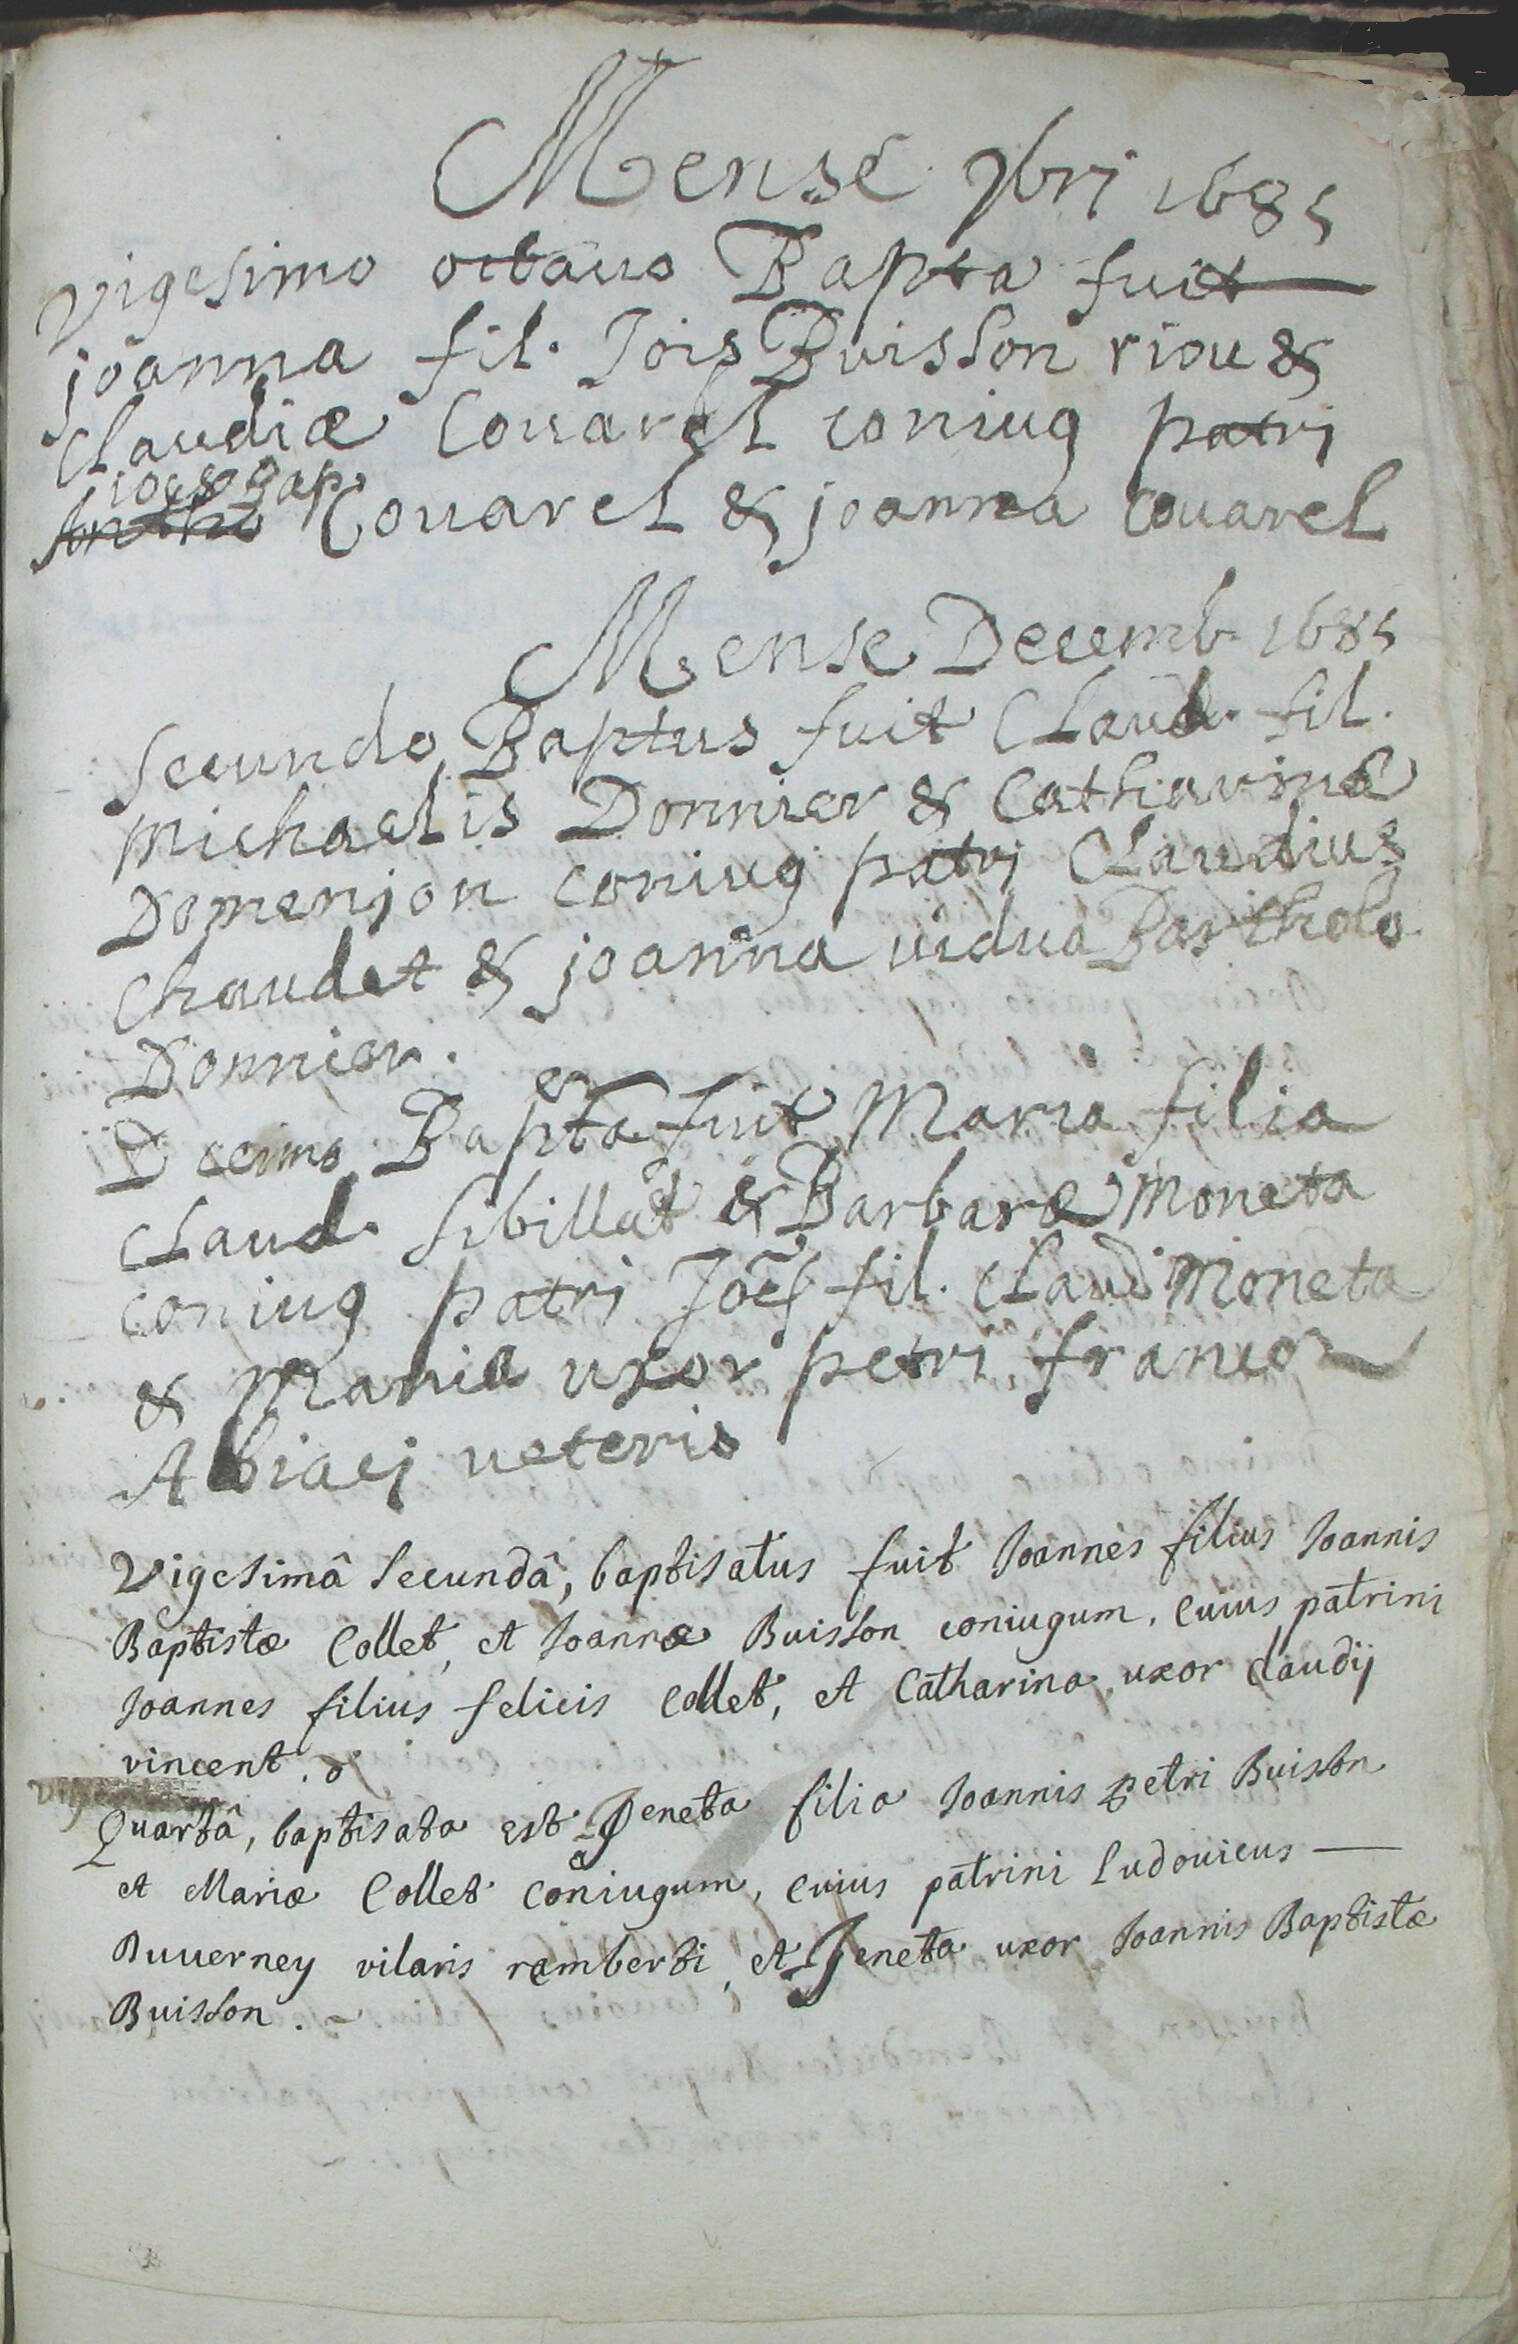 Mense 9bri 1685
Vigesimo octauo Bapta fuit
joanna fil. Jois Buisson riou &
Claudiæ Couarel coniug patri
Couarel & joanna Couarel
Mense Decemb. 1685
Secundo Baptus fuit Claud. fil.
Michaelis Donnier & Catharinæ
Domenjon coniug patrj Claudius
Chaudet & joanna uidua Bartholo
Donnier.
Decimo Bapta fuit Maria filia
Claud. Sibillat & Barbaræ Moneta
coniug patri Joes fil. Claud Moneta
& Maria uxor petri francoz
Albiacj ueteris
Vigesimâ Secundâ, baptisatus fuit Joannes filius Joannis
Baptistæ Collet, et Joannæ Buisson coniugum, cuius patrini
Joannes filius felicis Collet, et Catharina uxor claudij
vincent.
Quartâ, baptisata est Jeneta filia Joannis petri Buisson
et Mariæ Collet coniugum, cuius patrini Ludouicus
Duuerney vilaris remberti, et Jeneta uxor Joannis Baptistæ
Buisson.